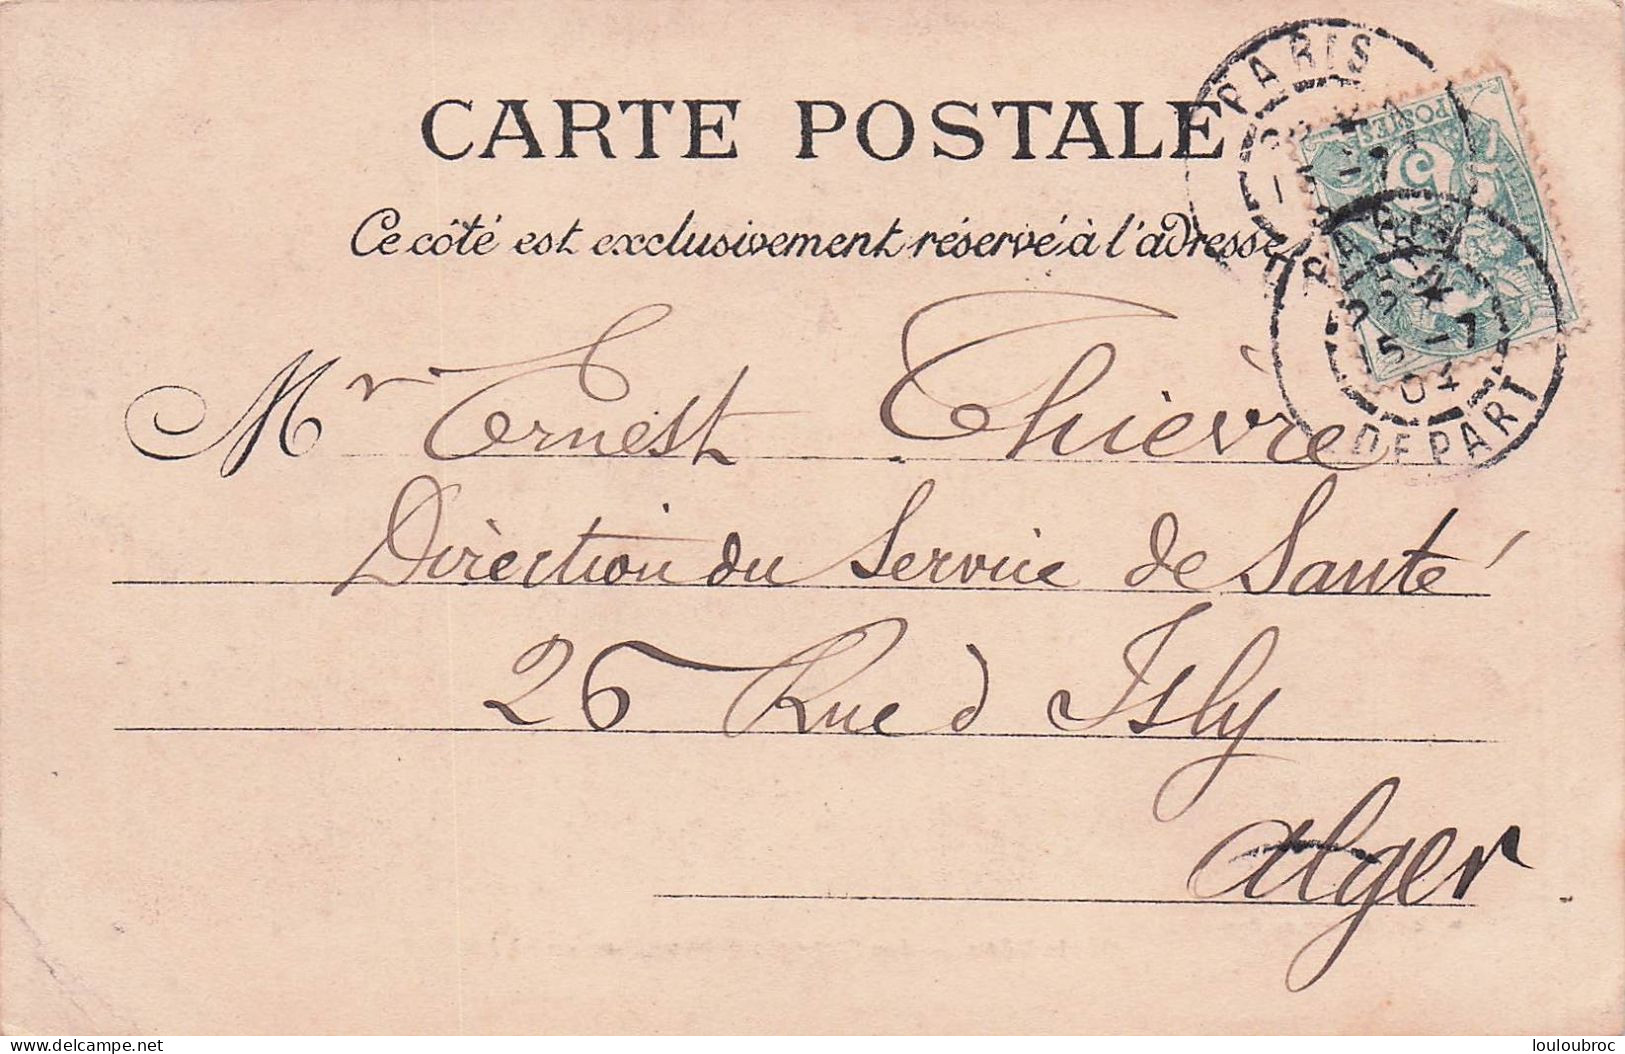 CARTE POSTALE
Ce côté est exclusivement réservé à l'adresse
PARIS
POSTES
5
PARIS
DEPART
7
04
Mr Ernest Thièvre
Direction du Service de Santé
26 Rue d Isly
Alger
delcampe.net
louloubroc